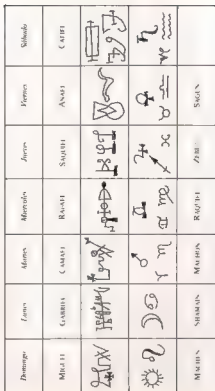 Domingo Lunes Martes Miércoles Jueves Viernes Sábado
MIGUEL GABRIEL CAMAEL RAFAEL SAQUIEL ANAEL CAFIEL
MACHEN SHAMAIN MACHON RAQUIE ZEBUL SAGUN